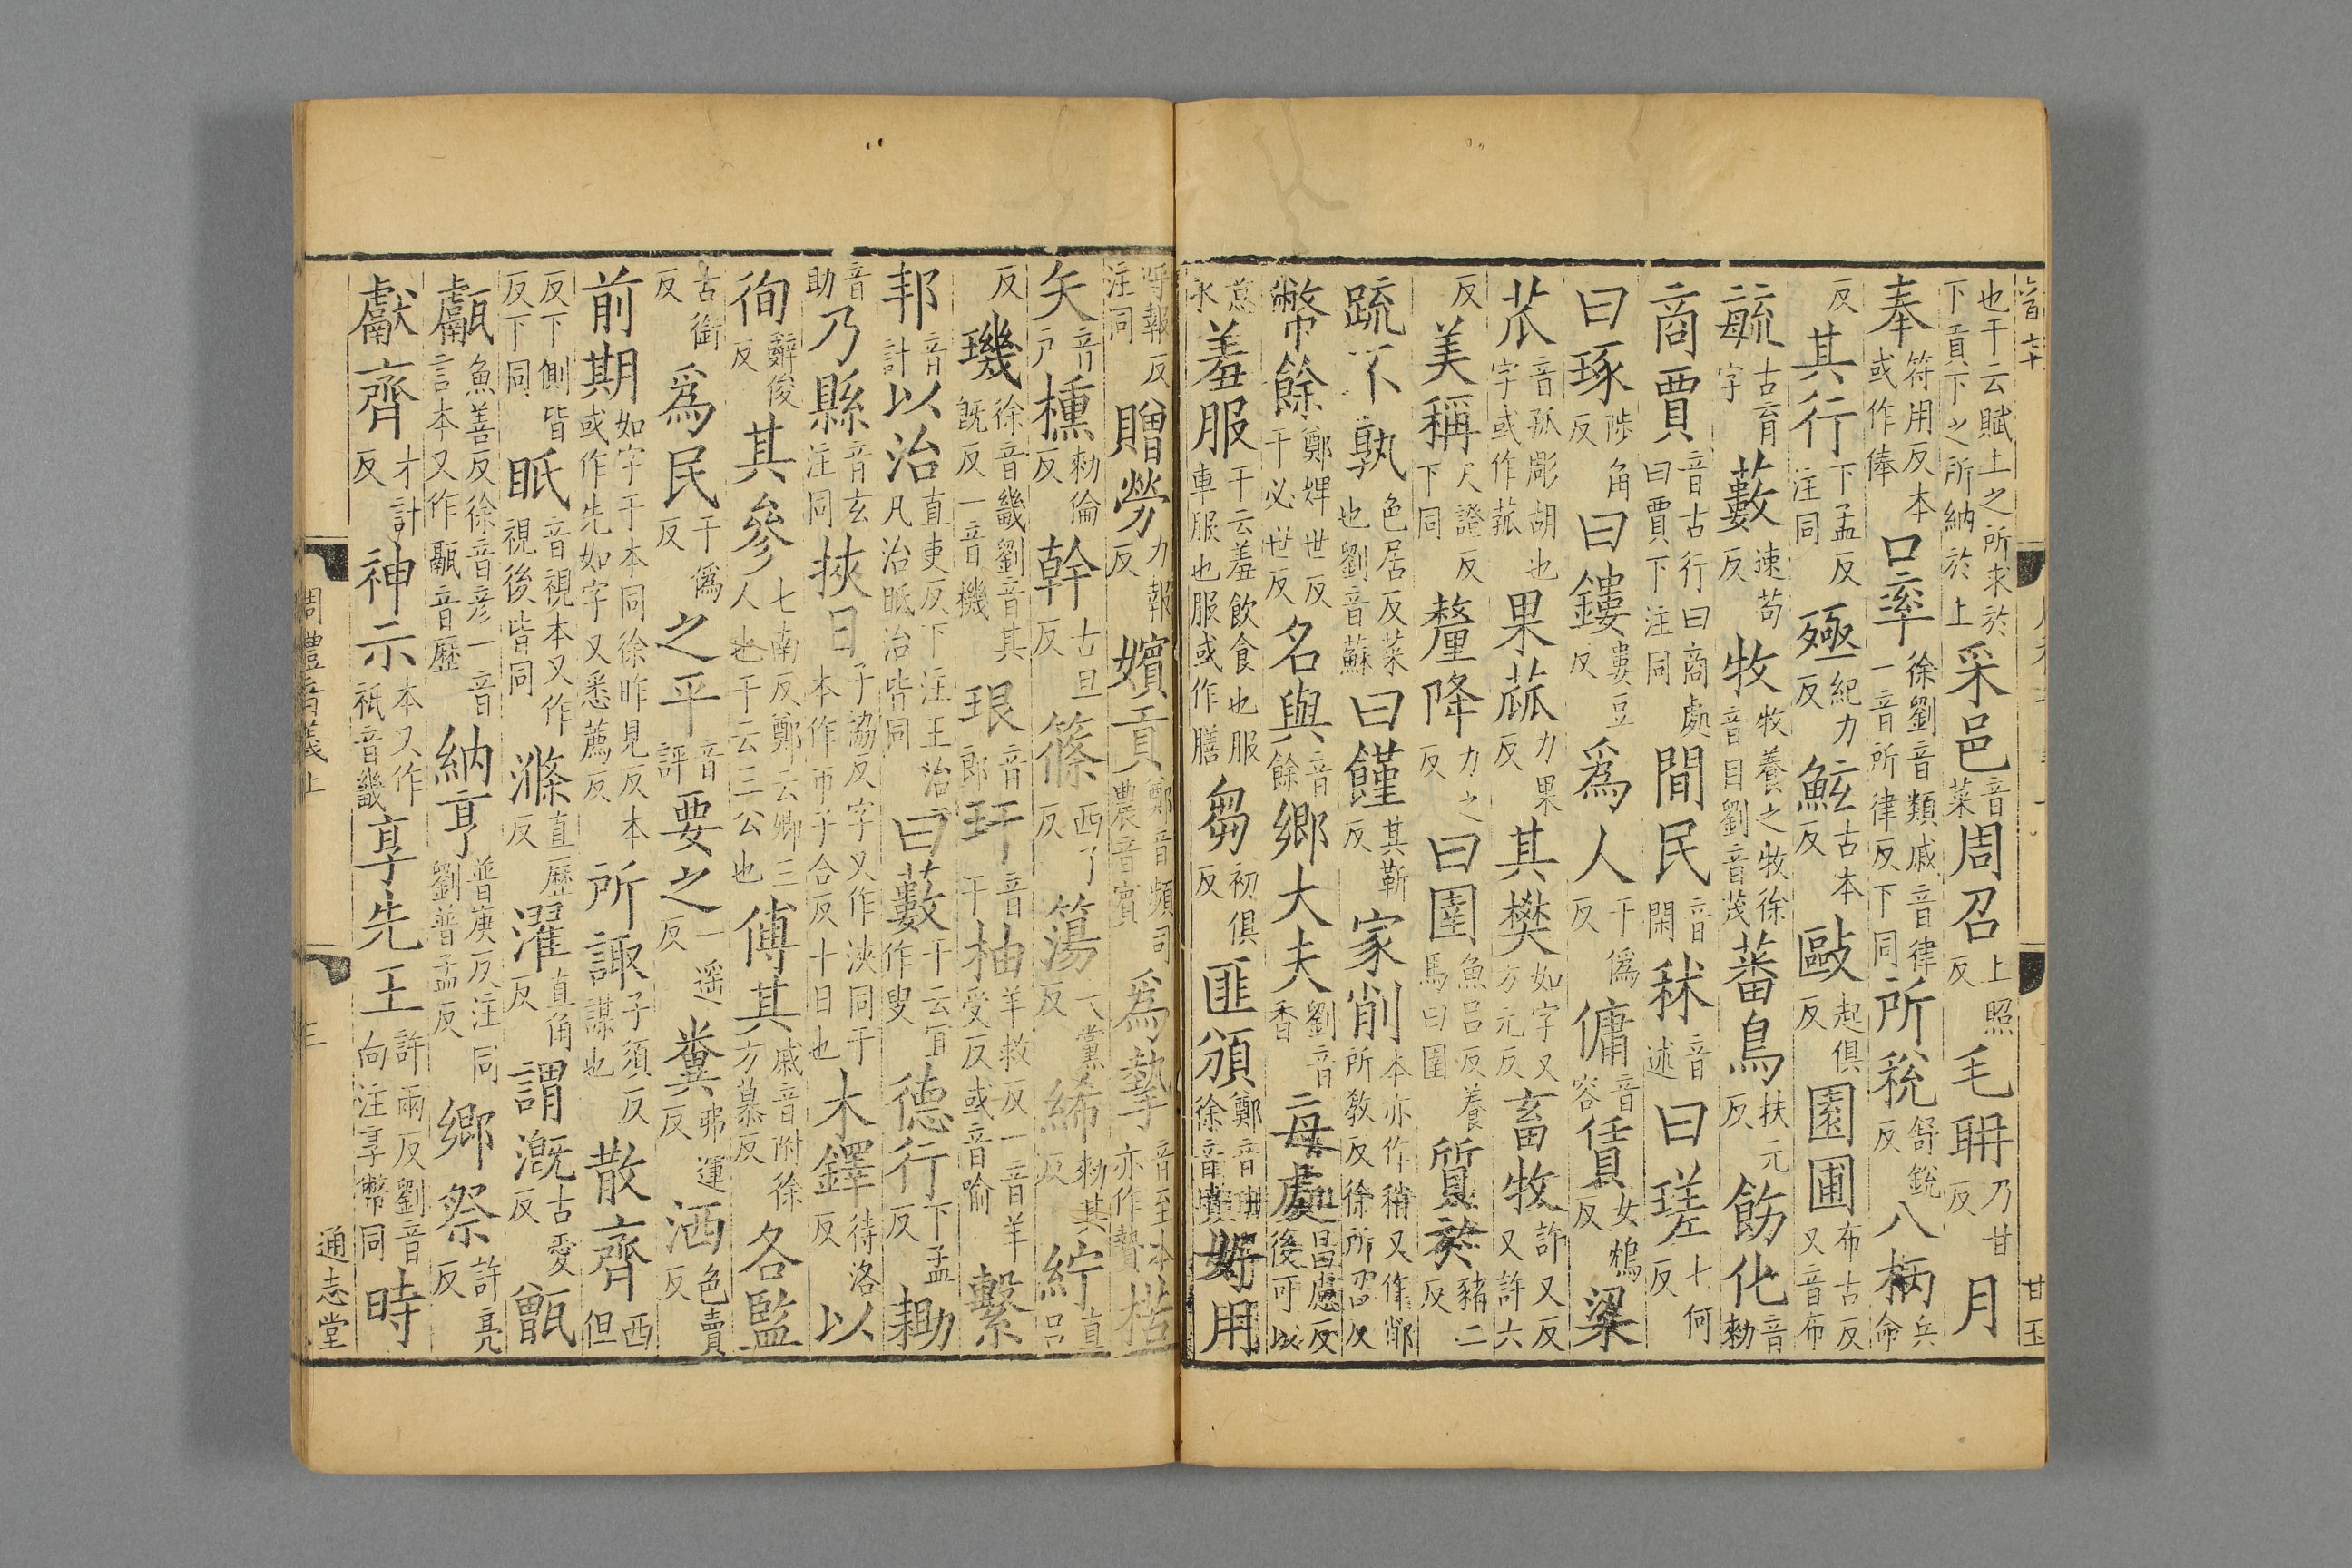 也干云賦上之所求於下貢下之所納於上采邑音菜周召上照反毛聃乃甘反月
奉符用反本或作俸口率徐劉音類戚音律一音所律反下同所稅舒銳反八柄兵命
反其行下孟反注同殛紀力反鮌古本反毆起俱反園圃布古反又音布
毓古育字藪速苟反牧牧養之牧徐音目劉音茂蕃鳥扶元反飭化音勑
商賈音古行曰商處曰賈下注同間民音閑秫音述曰瑳七何反
曰琢陟角反曰鏤婁豆反爲人于僞反傭音容賃女鴆反粱
苽音孤彫胡也字或作菰果蓏力果反其樊如字又方元反畜牧許又反又許六
反美稱尺證反下同釐降力之反曰圉魚呂反養馬曰圉質於豬二反
疏不孰色居反菜也劉音蘇曰饉其靳反家削本亦作稍又作䣯所教反徐所召反
幣餘鄭婢世反干必世反名與音餘鄉大夫劉音香每處昌慮反後可以
意求羞服干云羞飲食也服車服也服或作膳芻初俱反匪頒鄭音班徐音墳好用
呼報反注同贈勞力報反嬪貢鄭音頻司農音賓爲摯音至本亦作贄楛
矢音戶櫄勑倫反幹古旦反篠西了反簜大黨反絺勑其反紵直呂
反璣徐音畿劉音其旣反一音機珢音郎玕音干柚羊救反一音羊受反或音喻繫
邦音計以治直吏反下注王治凡治眡治皆同曰藪干云宜作叟德行下孟反耡
音助乃縣音玄注同挾日子協反字又作浹同干本作帀子合反十日也木鐸待洛反以
徇辭俊反其參七南反鄭云卿三人也干云三公也傅其戚音附徐方慕反各監
古銜反爲民于僞反之平音評要之一遥反糞弗運反洒色賣反
前期如字干本同徐昨見反本或作先如字又悉薦反所諏子須反謀也散齊西但
反下側皆反下同眡音視本又作視後皆同滌直歷反濯直角反謂漑古愛反甑
甗魚善反徐音彥一音言本又作鬳音歷納亨普庚反注同劉普孟反鄉祭許亮反
獻齊才計反神示本又作祇音畿享先王許兩反劉音向注享幣同時
周禮音義上 三 通志堂